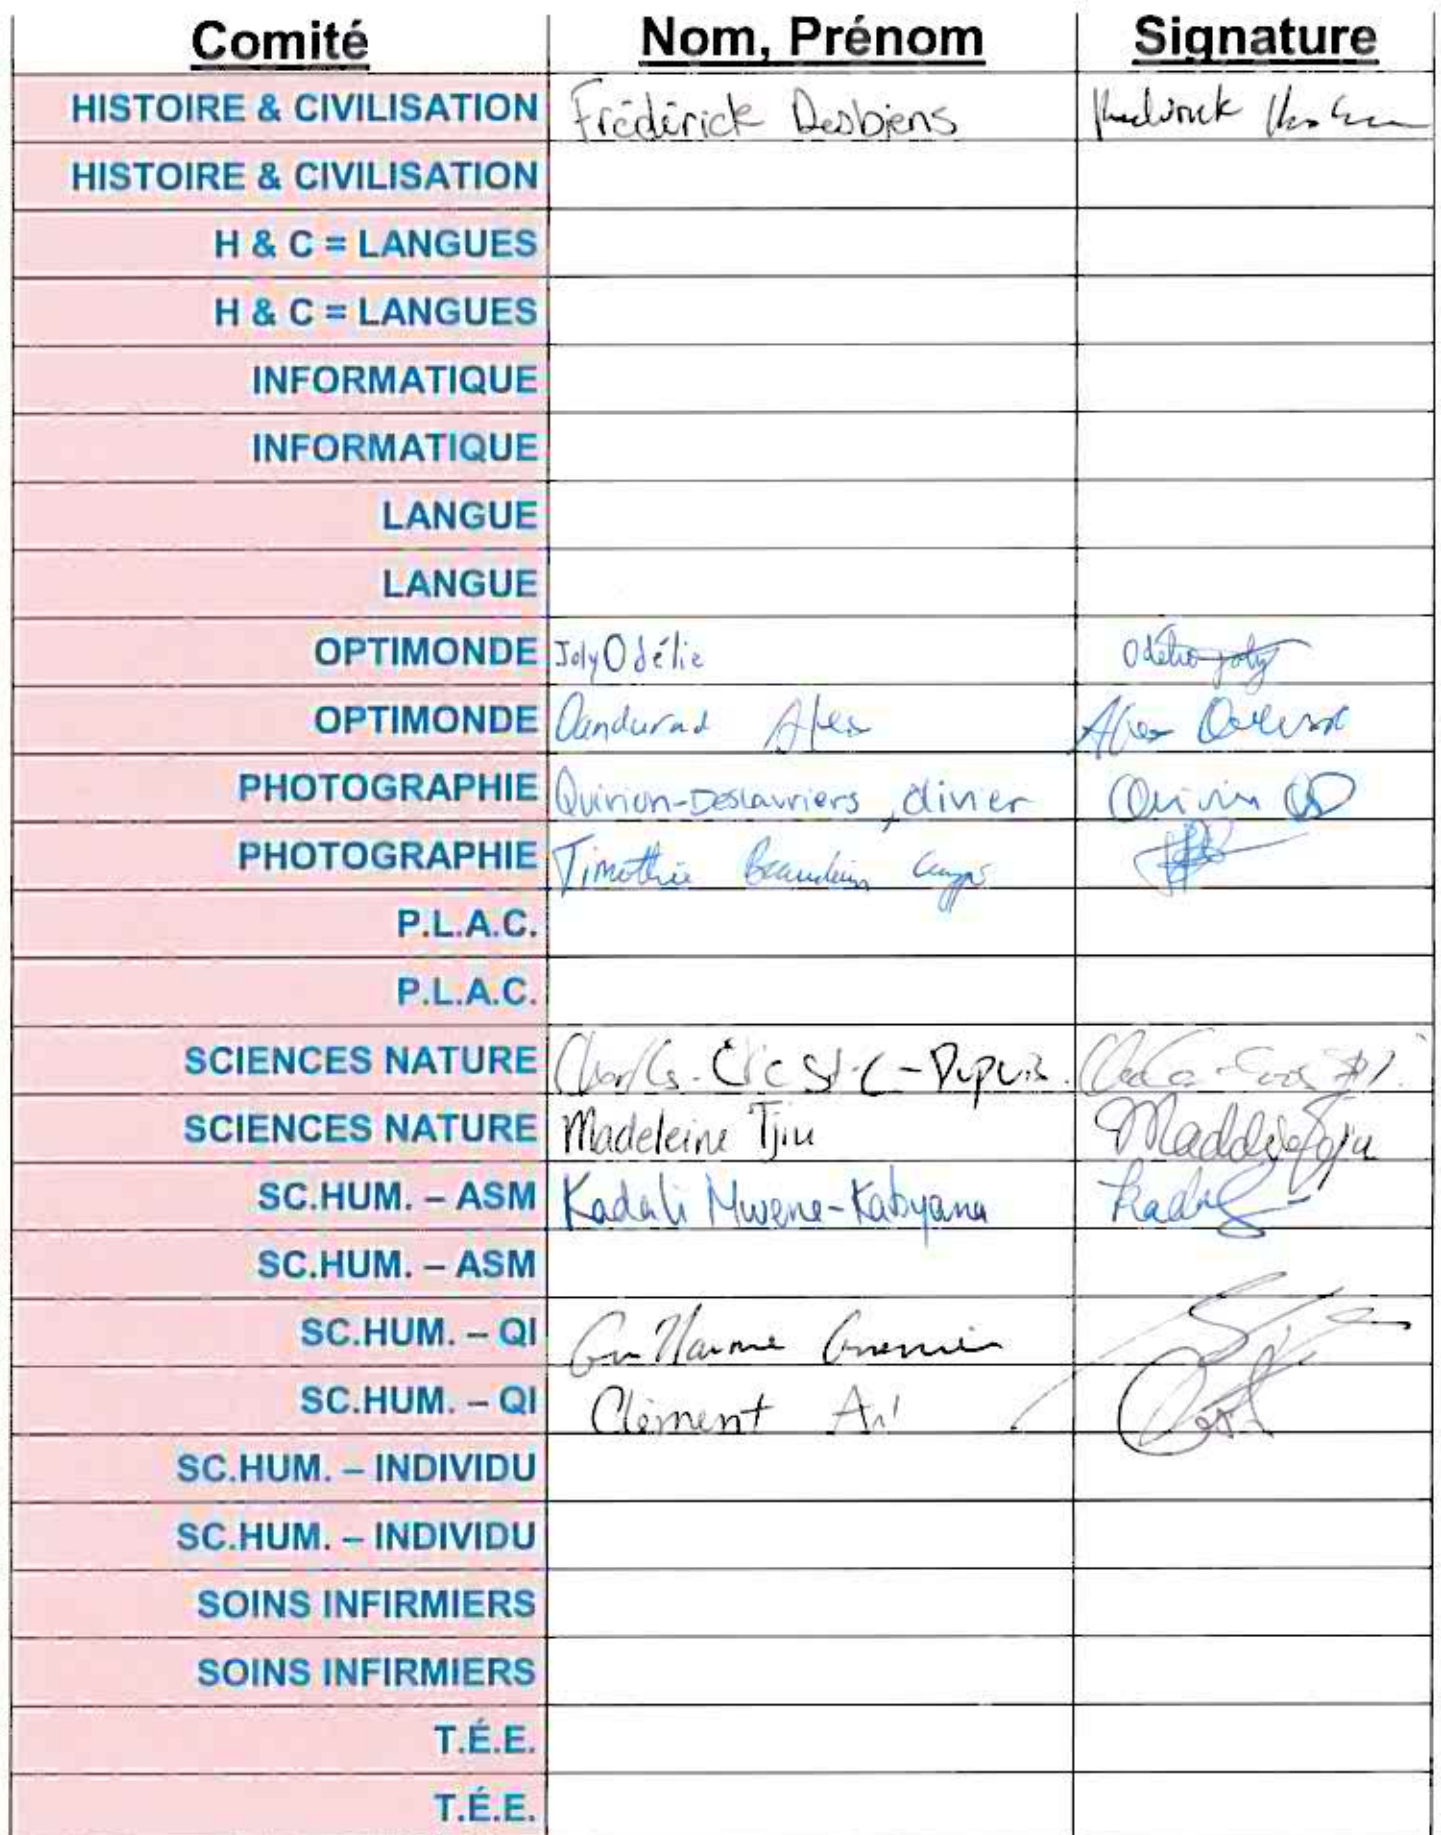 Comité Nom, Prénom Signature
HISTOIRE & CIVILISATION Fréderick Desbiens
HISTOIRE & CIVILISATION
H & C = LANGUES
H & C = LANGUES
INFORMATIQUE
INFORMATIQUE
LANGUE
LANGUE
OPTIMONDE Joly Odélie Odélie Joly
OPTIMONDE Dandurand Alex Alex
PHOTOGRAPHIE Quirion-Deslauriers, Olivier
PHOTOGRAPHIE Timothée Beaudoin
P.L.A.C.
P.L.A.C.
SCIENCES NATURE Charles-Éric St-C-Dupuis
SCIENCES NATURE Madeleine Tjiu Madeleine Tjiu
SC.HUM. – ASM Kadali Mwene-Kabyana
SC.HUM. – ASM
SC.HUM. – QI Guillaume
SC.HUM. – QI Clément
SC.HUM. – INDIVIDU
SC.HUM. – INDIVIDU
SOINS INFIRMIERS
SOINS INFIRMIERS
T.É.E.
T.É.E.